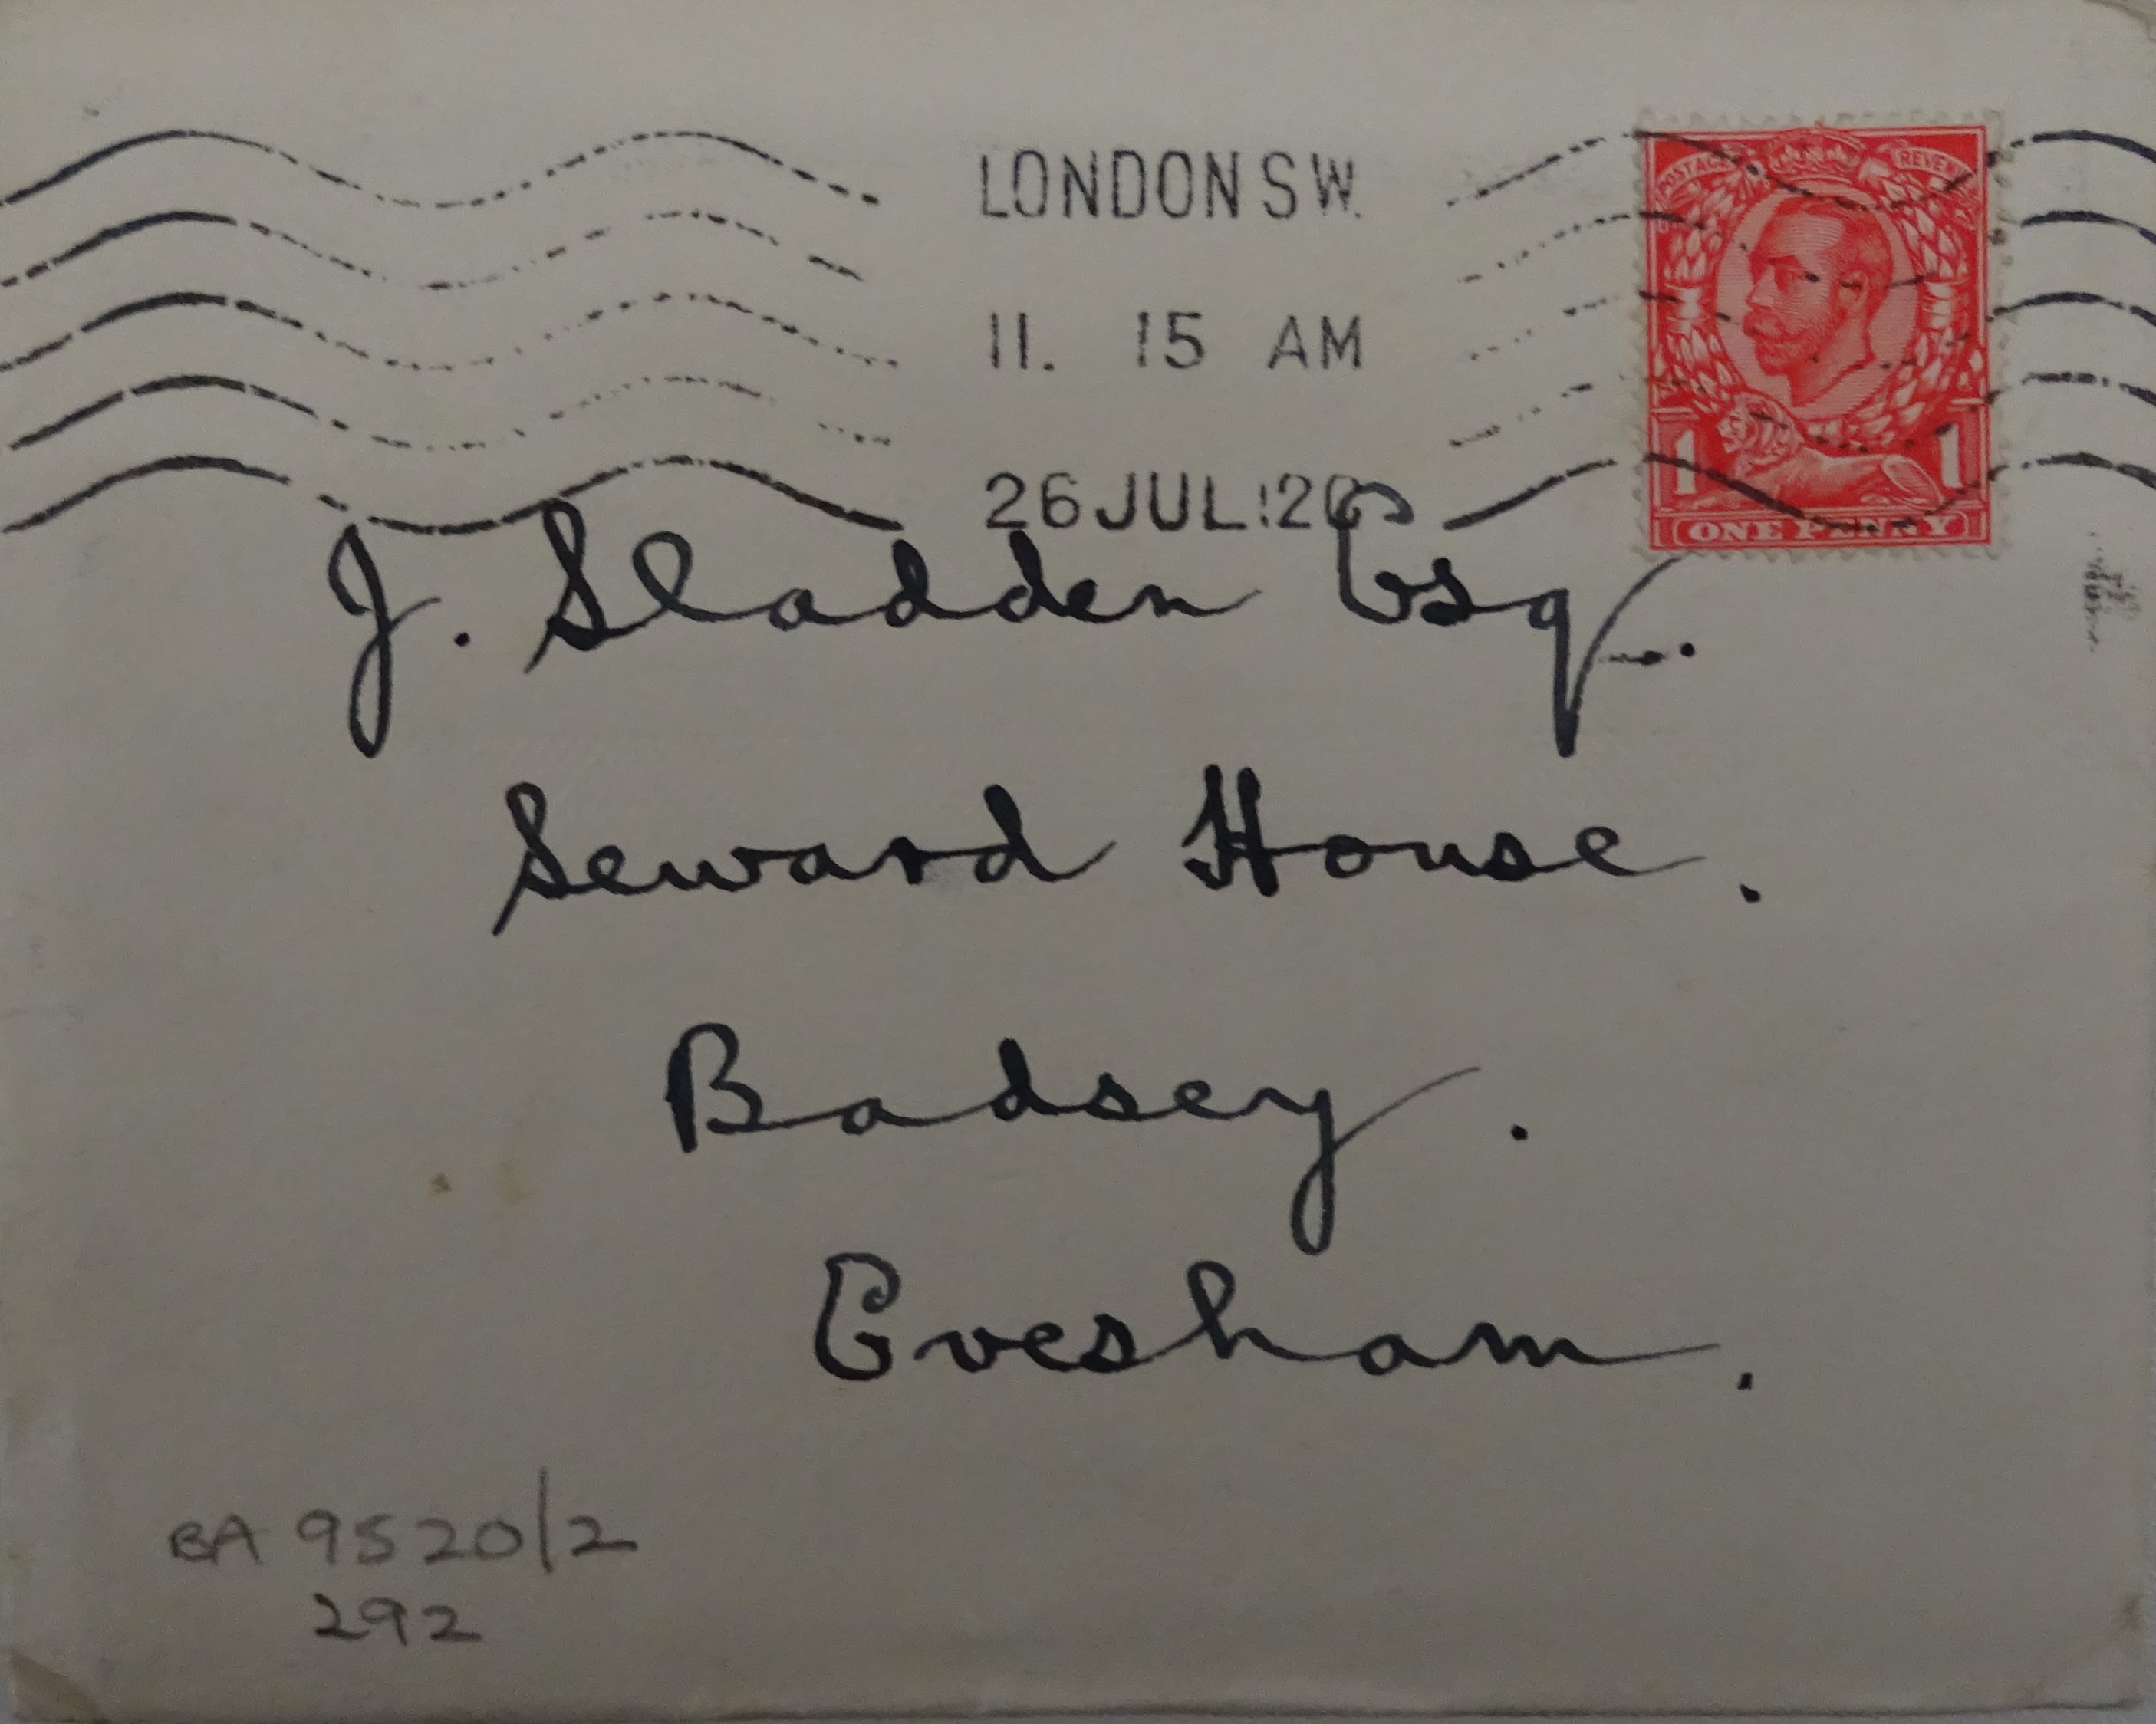 LONDON S.W.
11. 15 AM
26 JUL 20
POSTAGE REVENUE
1 1
ONE PENNY
J. Sladden Esq.
Seward House.
Badsey.
Evesham.
BA 9520/2
292